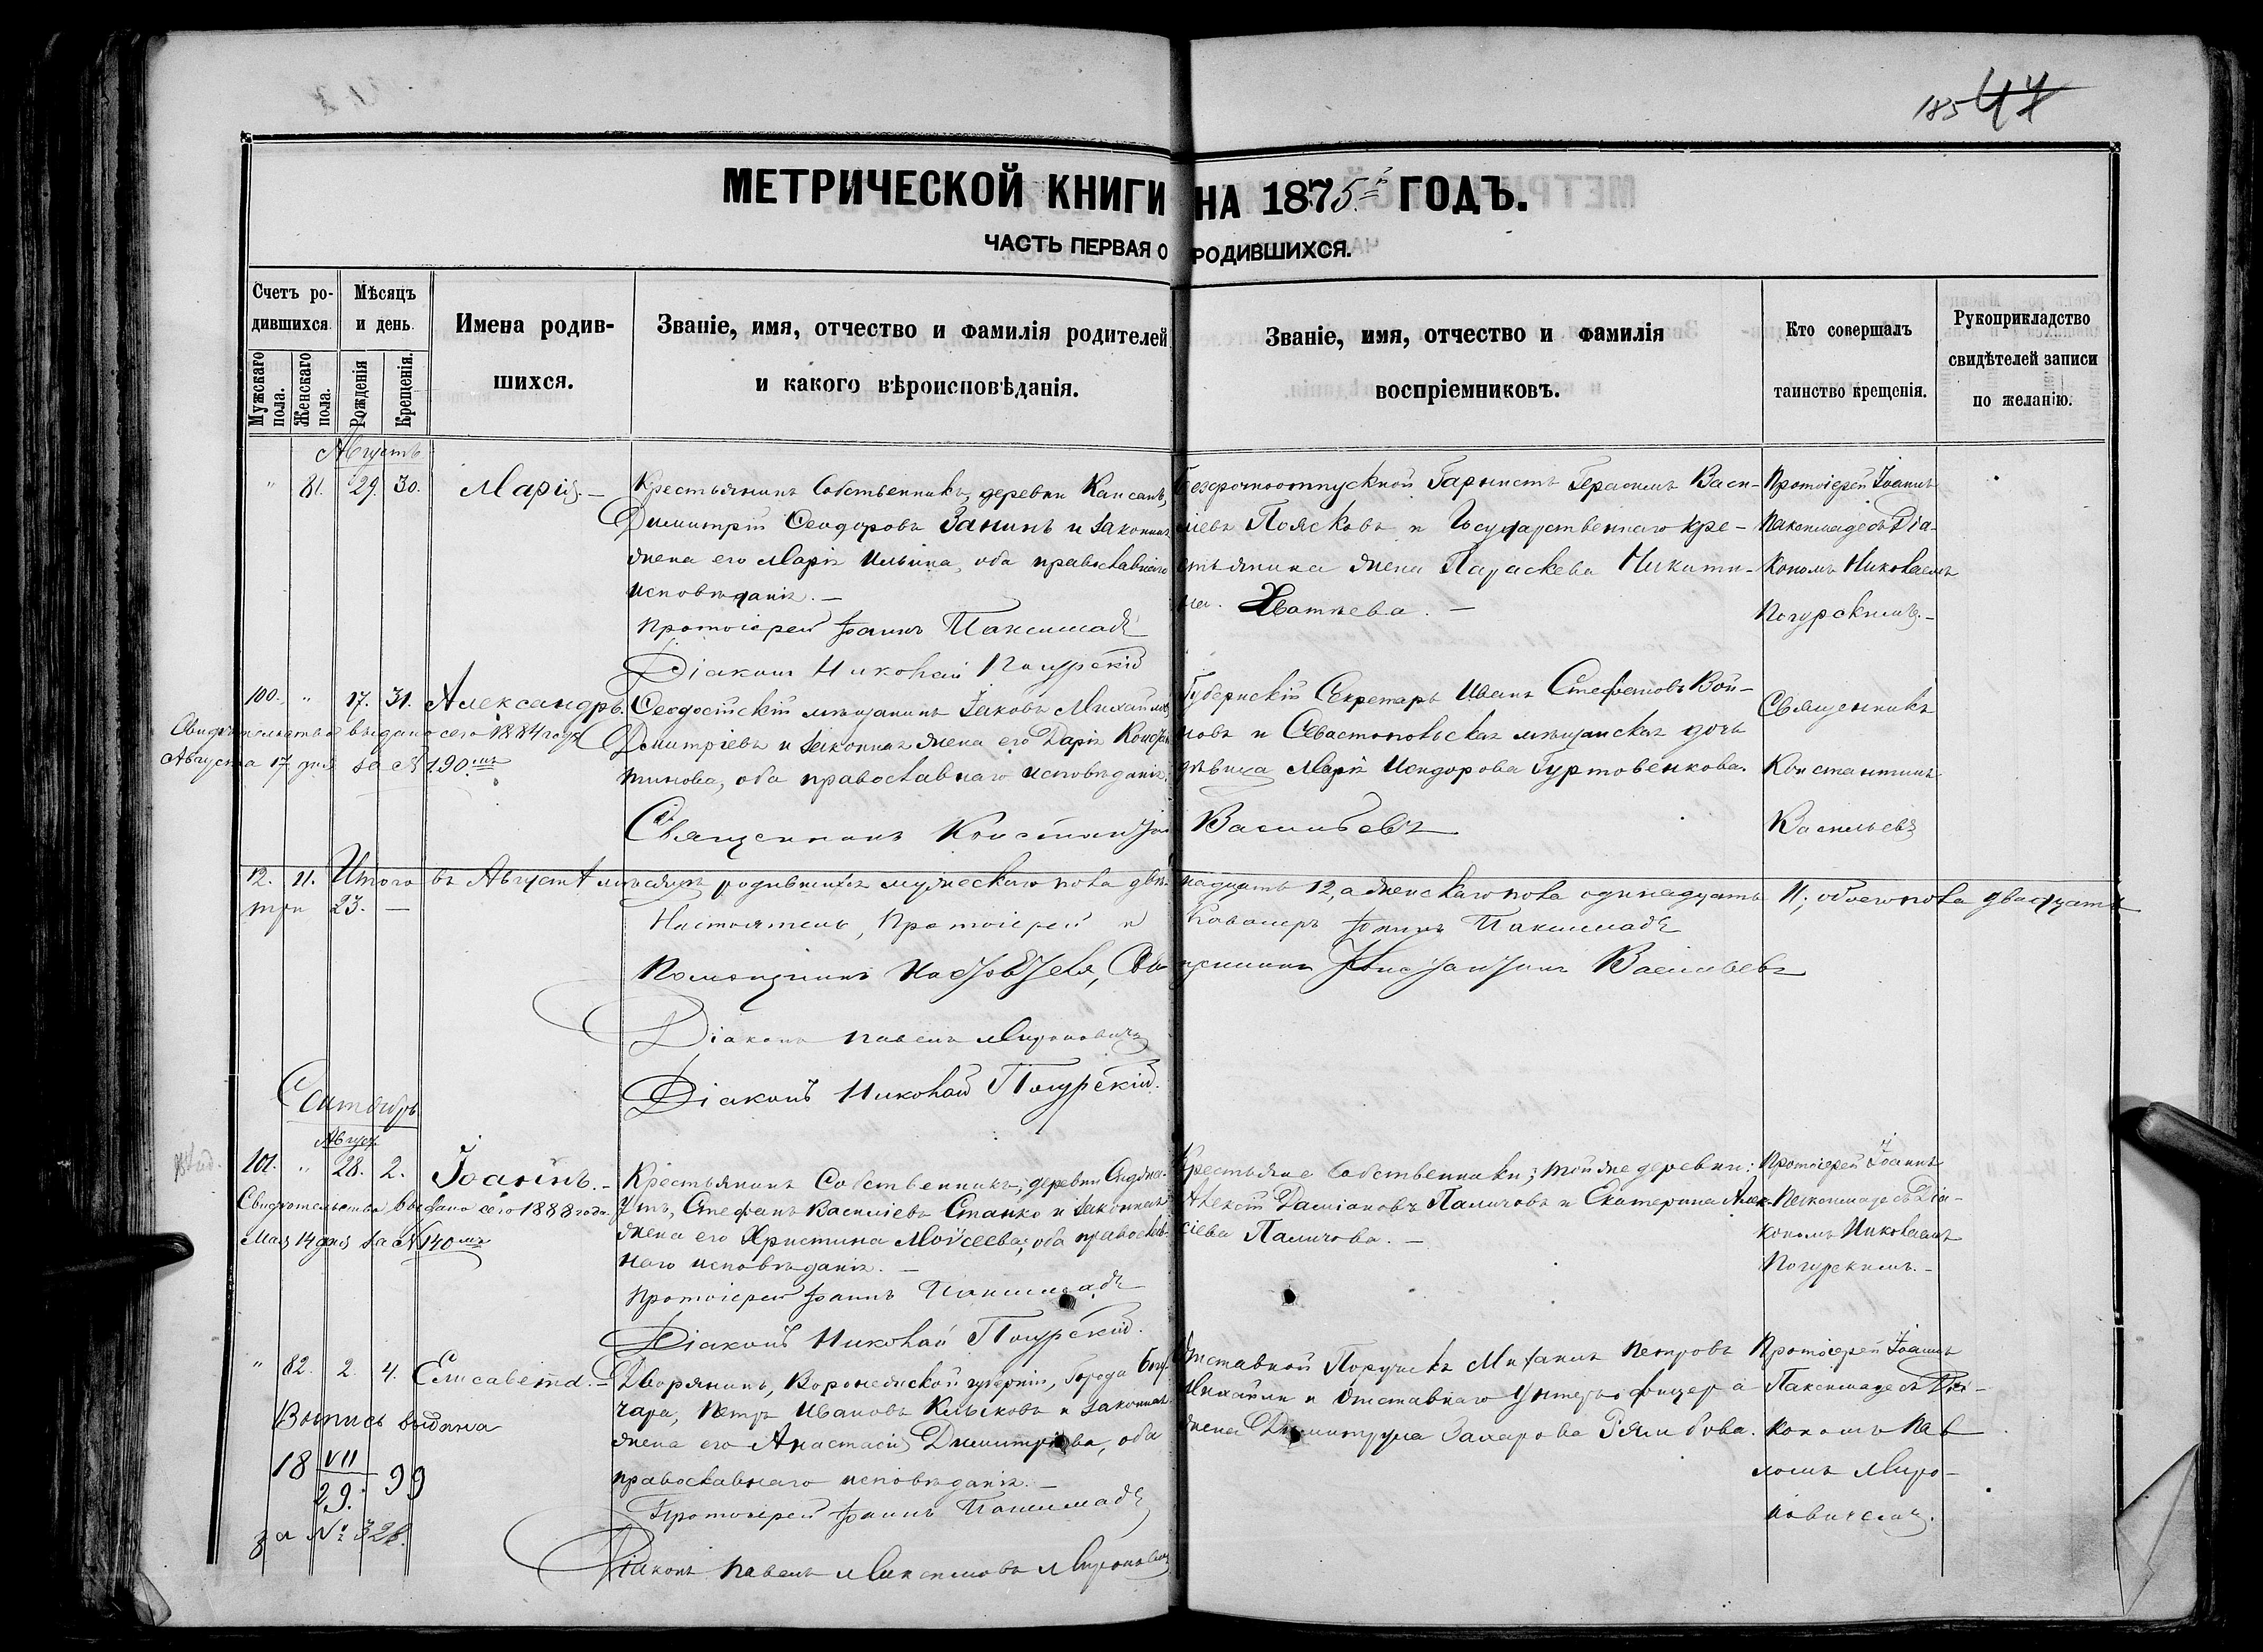 185 47
МЕТРИЧЕСКОЙ КНИГИ НА 1875й ГОДЪ.
ЧАСТЬ ПЕРВАЯ О РОДИВШИХСЯ.
Счетъ ро-
дившихся.
Мужскаго пола.
Женскаго пола.
Мѣсяцъ
и день.
Рожденія
Крещенія.
Имена родив-
шихся.
Званіе, имя, отчество и фамилія родителей
и какого вѣроисповѣданія.
Званіе, имя, отчество и фамилія
воспріемниковъ.
Кто совершалъ
таинство крещенія.
Рукоприкладство
свидѣтелей записи
по желанію.
Августъ
" 81. 29. 30. Марія. —
Крестьянинъ Собственникъ, деревни
Димитрій Ѳеодоровъ Занинъ и законная
жена его Марія Ильина, оба православнаго
исповѣданія. —
Протоіерей Іоаннъ Паксимадѣ
Діаконъ Николай Погурскій
Безсрочноотпускной Герасимъ Васи-
ліевъ Поясковъ и Государственнаго кре-
стьянина жена Параскева Никити-
на.
Протоіерей Іоаннъ
Паксимаде съ Діа-
кономъ Николаемъ
Погурскимъ. —
100. " 17. 31. Александръ.
Свидѣтельство выдано сего 1884 года
Августа 17 дня за № 190мъ
Ѳеодосійскій мѣщанинъ Іаковъ Михайловъ
Дмитріевъ и законная жена его Дарія Констан-
тинова, оба православнаго исповѣданія.
Священникъ Константинъ Васильевъ
Губернскій Секретарь Иванъ Стефановъ Вой-
новъ и Севастопольская мѣщанская дочь
дѣвица Марія Исидорова Гуртовенкова.
Священникъ
Константинъ
Васильевъ
12. 11. Итого въ Августѣ мѣсяцѣ родившихся мужескаго пола двѣ-надцать 12, а женскаго пола одинадцать 11; обоего пола двадцать
три 23. —
Настоятель, Протоіерей и Кавалеръ Іоаннъ Паксимадѣ
Помощникъ Настоятеля, Священникъ Константинъ Васильевъ
Діаконъ Павелъ Мироновичъ
Діаконъ Николай Погурскій.
Сентябрь
Август.
101. " 28. 2. Іоаннъ. —
Свидѣтельство выдано сего 1888 года
Мая 14 дня за № 140мъ
Крестьянинъ Собственникъ, деревни
Стефанъ Василіевъ Станко и законная
жена его Христина Моѵсеева, оба православ-
наго исповѣданія. —
Протоіерей Іоаннъ Паксимадѣ
Діаконъ Николай Погурскій.
Крестьяне Собственники; той же деревни:
Алексій Даміановъ Паличовъ и Екатерина Алек-
сіева Паличова. —
Протоіерей Іоаннъ
Паксимаде съ Діа-
кономъ Николаемъ
Погурскимъ. —
" 82. 2. 4. Елисавета. —
Выпись выдана
18 VII/29. 99
за № 328.
Дворянинъ, Воронежской губерніи, Города Богу-
чара, Петръ Ивановъ и законная
жена его Анастасія Димитріева, оба
православнаго исповѣданія. —
Протоіерей Іоаннъ Паксимадѣ
Діаконъ Павелъ Максимовъ Мироновичъ
Отставной Поручикъ Михаилъ Петровъ
и отставнаго Унтеръ-офицера
жена Захарова
Протоіерей Іоаннъ
Паксимаде съ Діа-
кономъ Пав
ломъ Миро-
новичемъ.